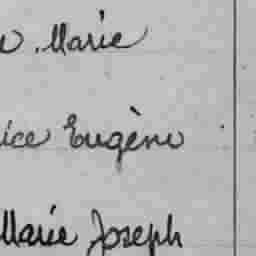 Marie
ice Eugène
Marie Joseph